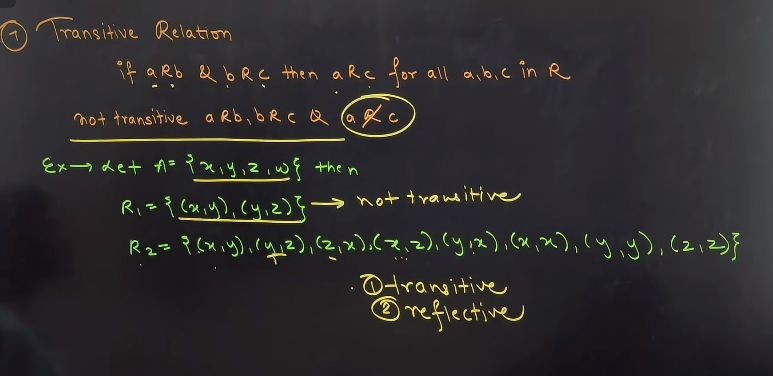 ⑦ Transitive Relation
if aRb & bRc then aRc for all a,b,c in R
not transitive aRb, bRc & a R̸ c
Ex → Let A = {x,y,z,w} then
R₁ = {(x,y), (y,z)} → not transitive
R₂ = {(x,y), (y,z), (z,x), (x,z), (y,x), (x,x), (y,y), (z,z)}
① transitive
② reflective